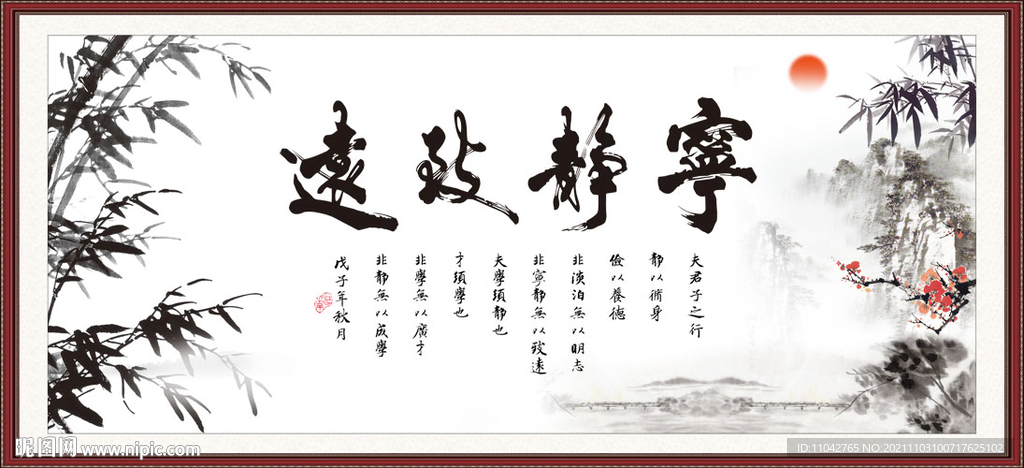 寧靜致遠
夫君子之行
靜以脩身
儉以養德
非淡泊無以明志
非寧靜無以致遠
夫學須靜也
才須學也
非學無以廣才
非靜無以成學
戊子年秋月
昵图网 www.nipic.com
ID:11042765 NO:20211103100717625102